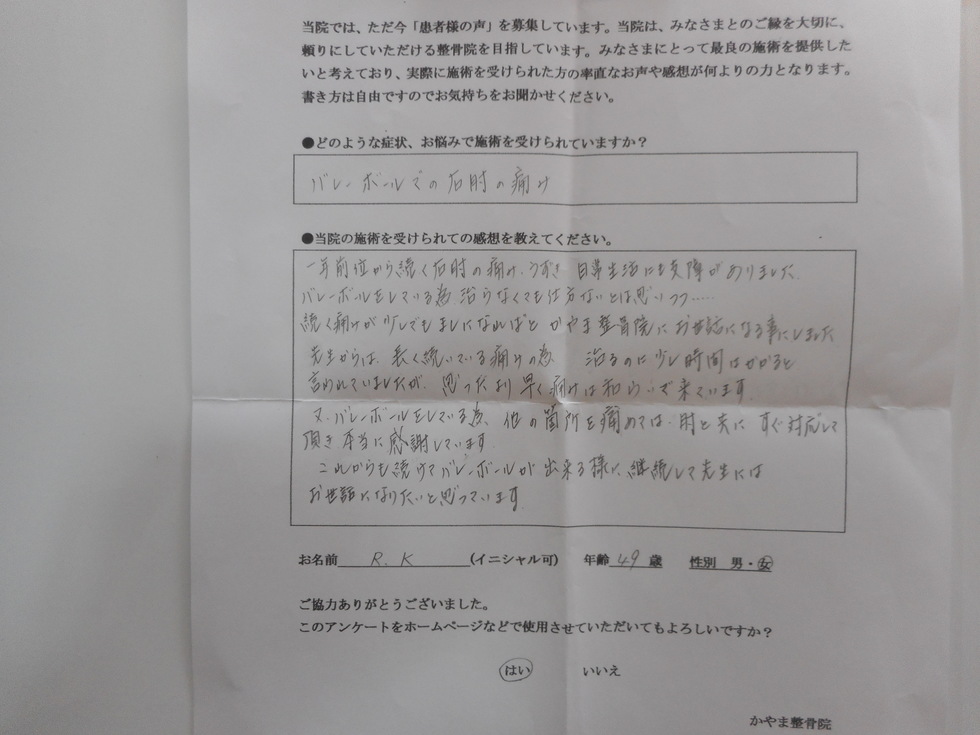 当院では、ただ今「患者様の声」を募集しています。当院は、みなさまとのご縁を大切に、
頼りにしていただける整骨院を目指しています。みなさまにとって最良の施術を提供した
いと考えており、実際に施術を受けられた方の率直なお声や感想が何よりの力となります。
書き方は自由ですのでお気持ちをお聞かせください。
●どのような症状、お悩みで施術を受けられていますか？
バレーボールでの右肘の痛み
●当院の施術を受けられての感想を教えてください。
一年前位から続く右肘の痛み、うずき 日常生活にも支障がありました。
バレーボールをしている為、治らなくても仕方ないとは思いつつ……
続く痛みが少しでもましになればと かやま整骨院にお世話になる事にしました
先生からは、長く続いている痛みの為 治るのに少し時間はかかると
言われていましたが、思ったより早く痛みは和らいで来ています。
又、バレーボールをしている為、他の箇所を痛めては、肘と共に すぐ対応して
頂き本当に感謝しています。
これからも続けてバレーボールが出来る様に、継続して先生には
お世話になりたいと思っています。
お名前 R.K (イニシャル可) 年齢 49 歳 性別 男・女
ご協力ありがとうございました。
このアンケートをホームページなどで使用させていただいてもよろしいですか？
はい いいえ
かやま整骨院